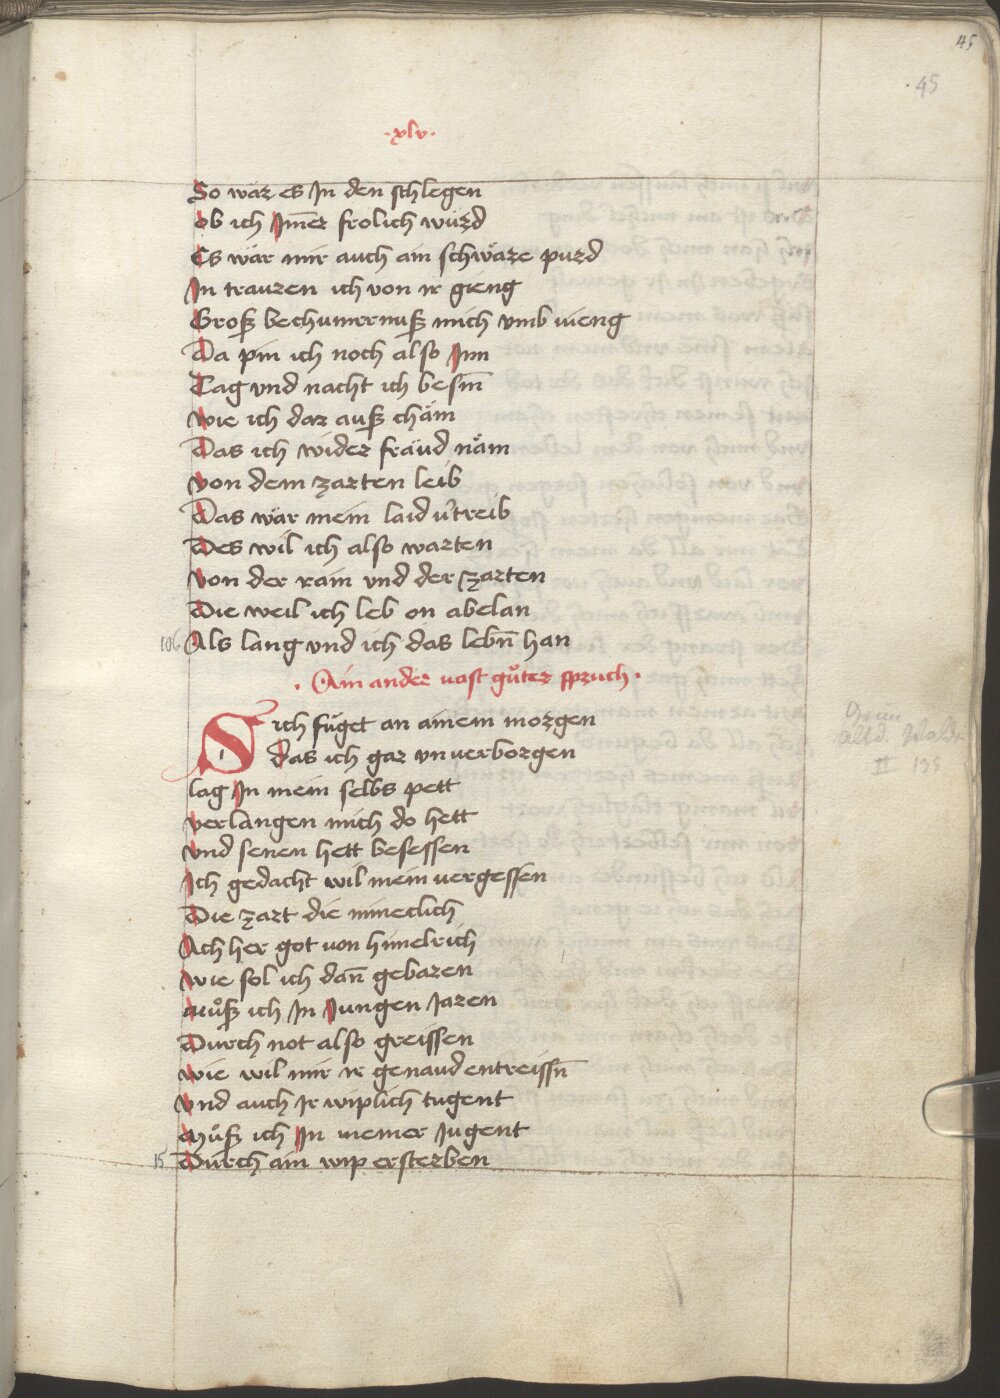 45
.45
·xlv·
So wär es Jn den schlegen
ob ich Jm̄er frolich würd
Es wär mir auch ain schwäre purd
Jn trauren ich von ir gieng
Groſz bechumernuſz mich vmb vieng
Da pin ich noch also Jnn
Tag vnd nacht ich besin̄
wie ich dar auſz chäm
Das ich wider fräud näm
von dem zarten leib
Das wär mein laid v̓treib
Des wil ich also warten
von der rain vnd der zarten
Die weil ich leb on abelan
106 Als lang vnd ich das lebn̄ han
· Ain ander vast gůter spruch ·
Sich füget an ainem morgen
das ich gar vnuerborgen
lag Jn mein selbs pett
verlangen mich do hett
vnd senen hett besessen
Jch gedacht wil mein vergessen
Die zart die mineclich
Ach her got von himelrich
wie sol ich dan̄ gebaren
můſz ich Jn Jungen Jaren
Durch not also greissen
wie wil mir ir genaud entreissn̄
vnd auch Jr wiplich tugent
můſz ich Jn meiner Jugent
15 Durch ain wip ersterben
II 135